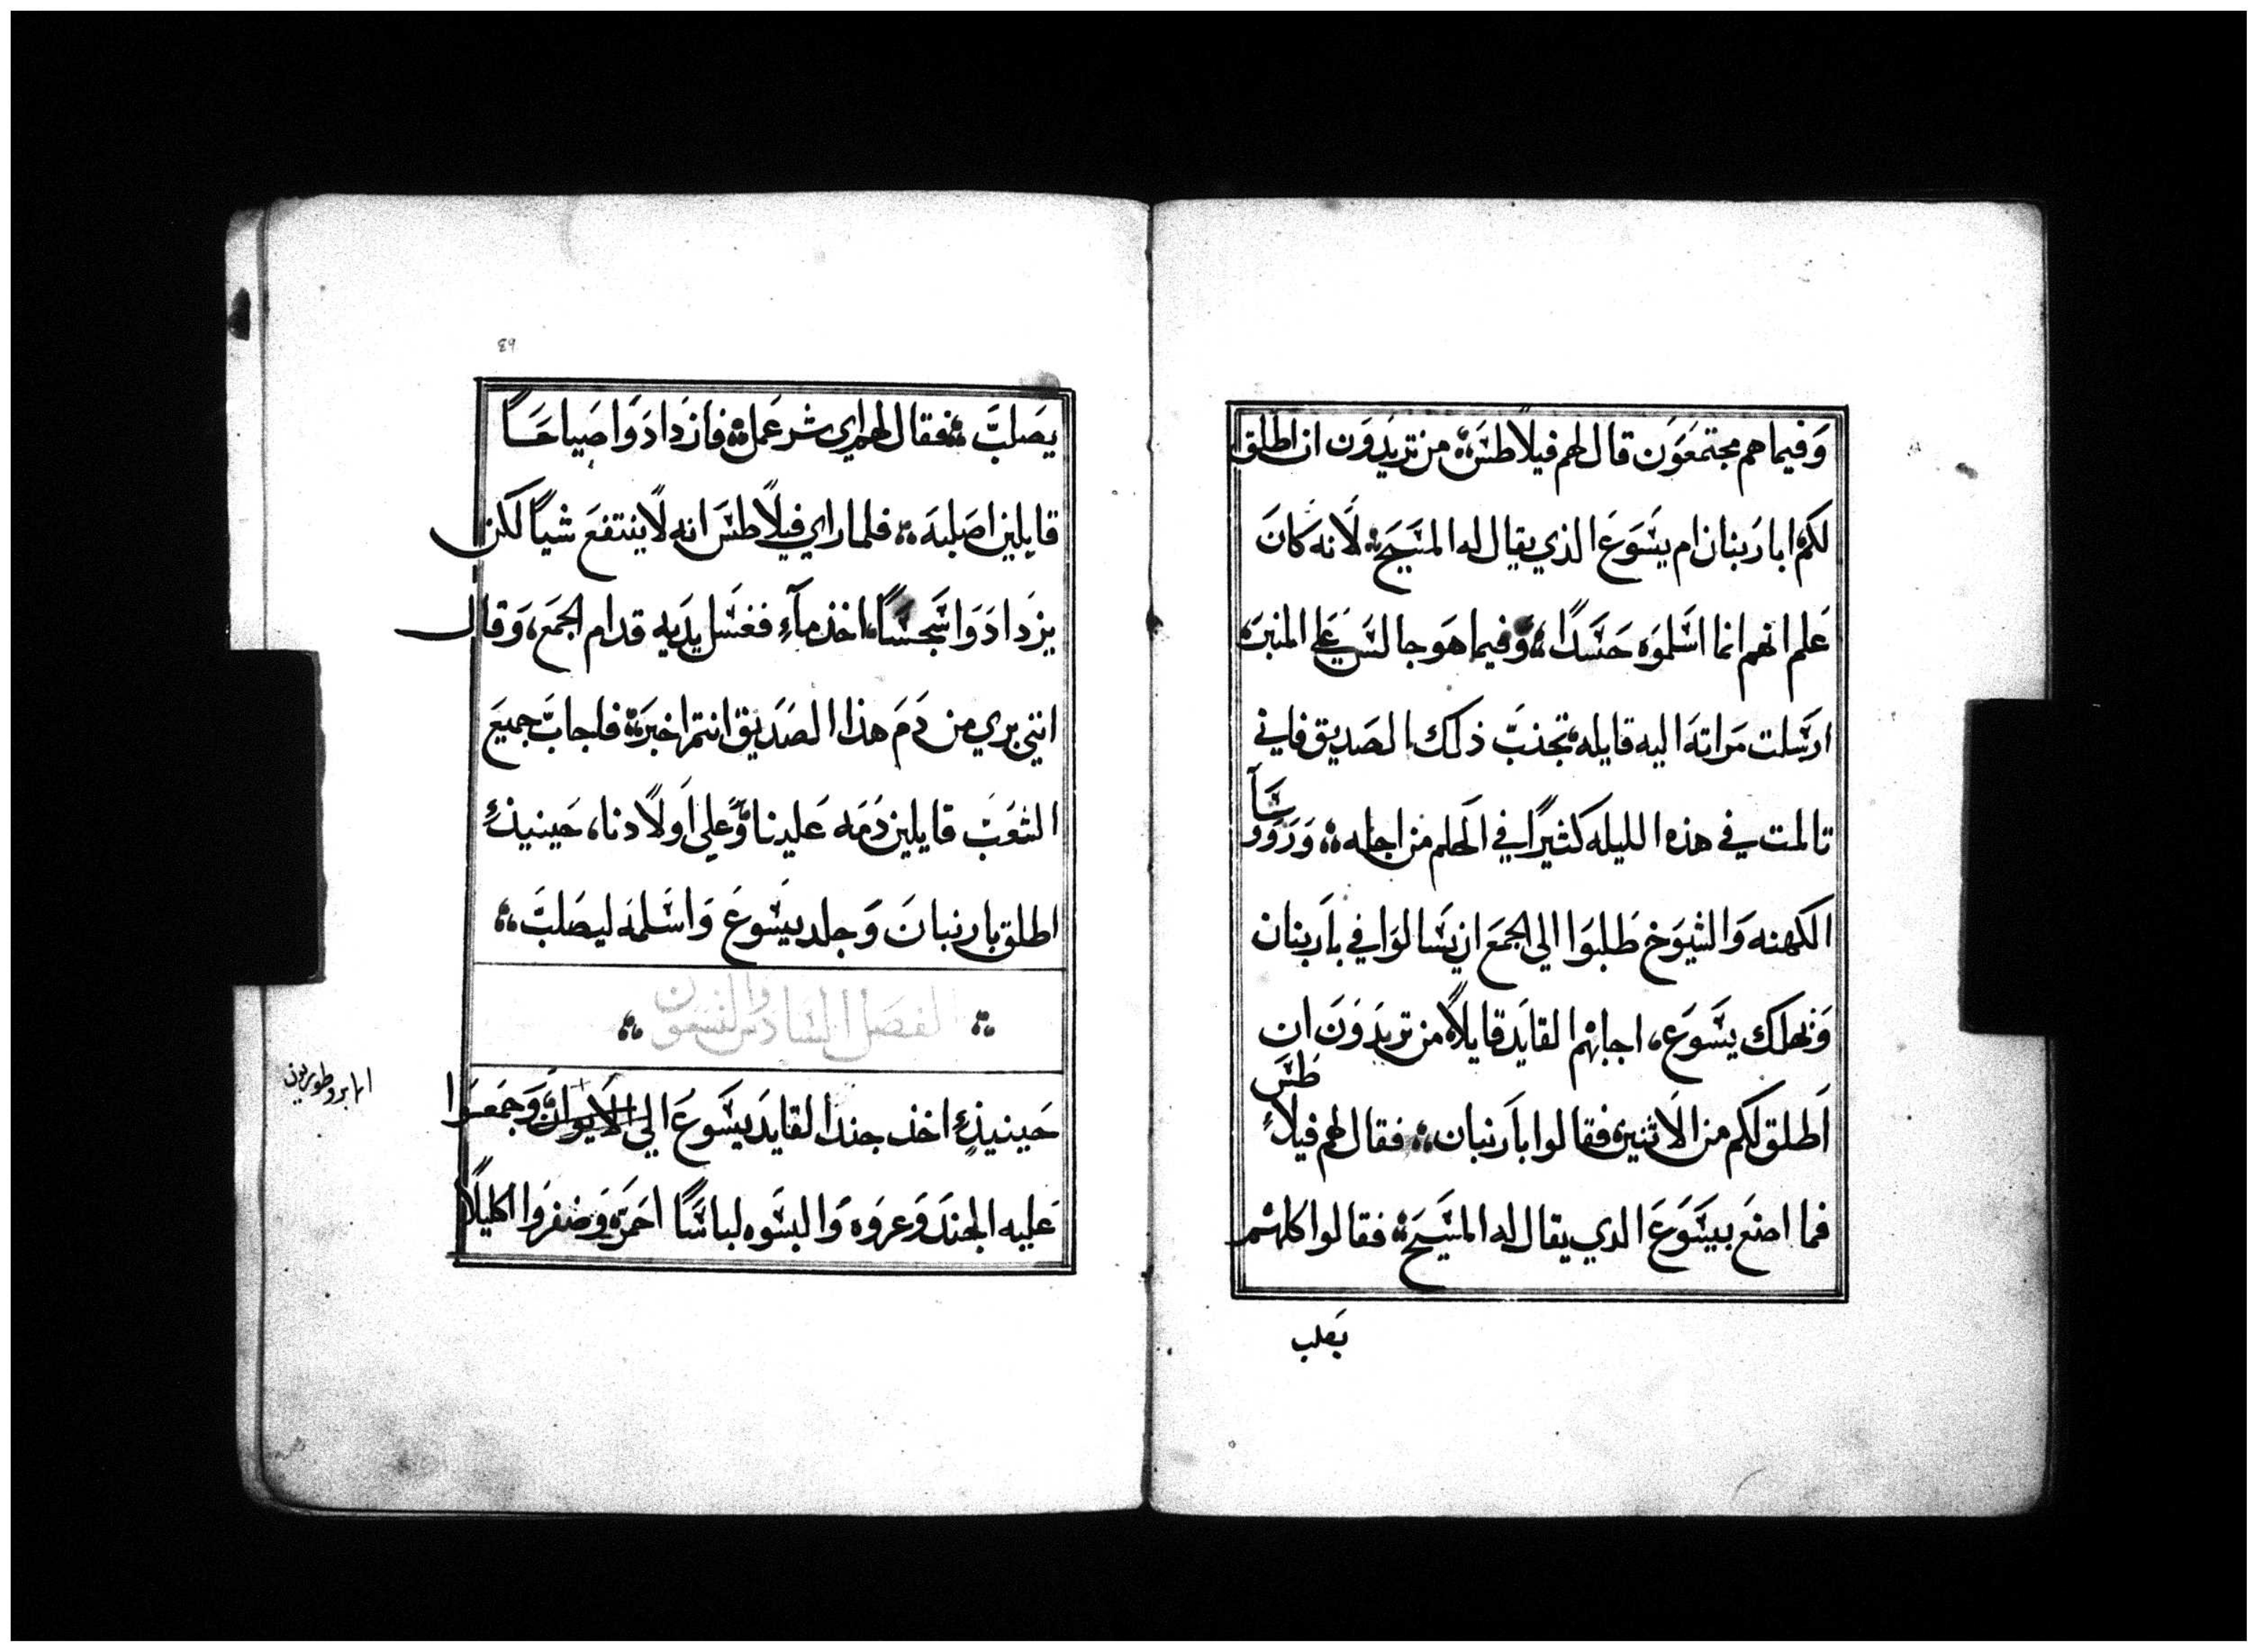 وَفيما هم مجتمعَوَن قال لهم فيلاطسَ؞ من تريدَوَن ان اطلق
لكم ابارَبنان ام يسَوَعَ الذي يقال له المسَيَحَ؞ لَانه كانَ
عَلم انهم انما اسَلموَه حَسَدًا؞ وَفيما هوَ جالسَ عَلي المنبرَ؞
ارسَلت مَراته اليه قايله؞ تجذبَّ ذلك الصَديق فاني
تالمت في هذه الليله كثيرًا في الَحلم من اجله؞ وَرَووَسَآ
الكهنه وَالشيوَخ طَلبوَا الي الجمعَ ان يسَالوَا في باَرَبنان
وَنهلك يسَوَعَ، اجابهم القايَد قايلًا؞ من تريدَوَنَ ان
اَطلق لكم من الَاثنين؞ فقالوا باَرَنبان؞ فقال لهم فيلاَطسَ
فما اصنعَ بيسَوَعَ الدي يقال له المسَيَحَ؞ فقالوا كلهم
يَصلب
89
يصَلبَّ؞ فقال لهم اي شر عَمل؞ فازدَادَوَا صَياحَاً
قايلين اصَلبه؞ فلما راي فيلاًطسَ انه لَاينتفعَ شياً لكن
يزدَادَوَا سَجسَاً، اخذ مآءِ فغسَل يدَيه قدام الجمعَ، وَقال
انني بري من دَمَ هذا الصَدَيق انتم اخبرَ؞ فاجابَّ جميعَ
الشعَبَ قايلين دَمَه عَلينا وَعَلي اَولَادنا، حَينيذٍ
اطلق بارنبانَ وَجلد يسَوعَ وَاسَلمَه ليصَلبَّ؞
الفصَل السَادسَ والتسَعون
حَينيذٍ اخذ جند القايدَ يسَوعَ الي الَايوان وَجمعَوَا
عَليه الجندَ وَعروَه وَالبسَوه لباسَاً احمرَ؞ وَضفرَوا اكليلًا
الابروطوريون